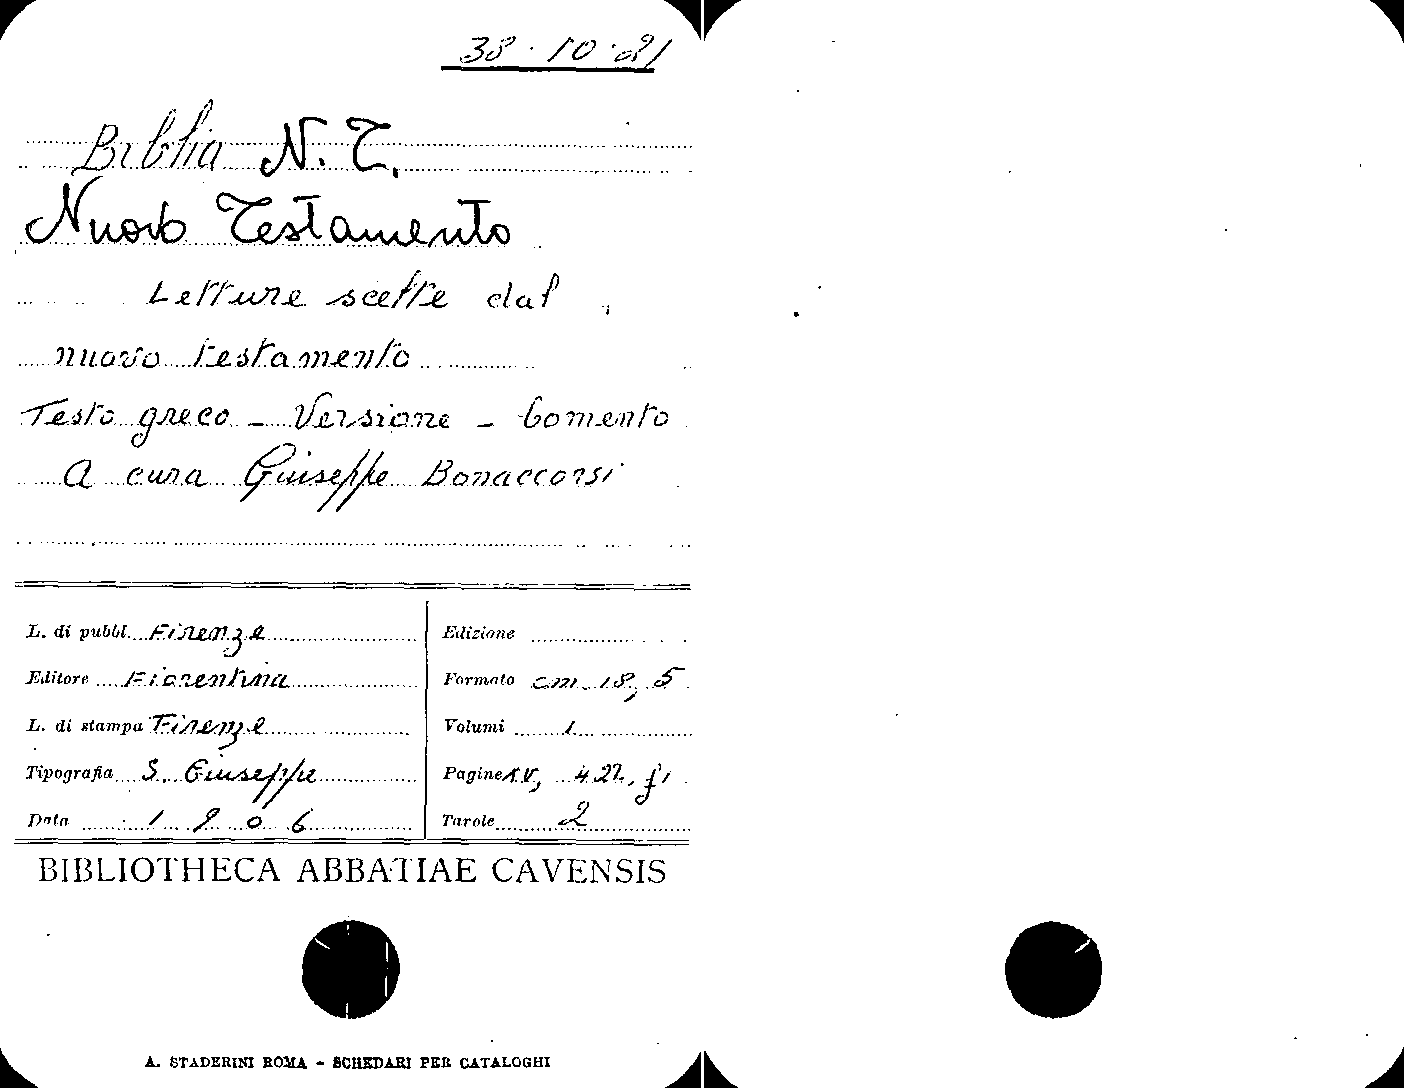 38.10.21
Biblia N. T.
Nuovo Testamento
Letture scelte dal
nuovo testamento
Testo greco - Versione - Comento
A cura Giuseppe Bonaccorsi
L. di pubbl. Firenze
Editore Fiorentina
L. di stampa Firenze
Tipografia S. Giuseppe
Data 1906
Edizione
Formato cm. 18,5
Volumi 1
Pagine XV, 422,
Tavole 2
BIBLIOTHECA ABBATIAE CAVENSIS
A. STADERINI ROMA - SCHEDARI PER CATALOGHI